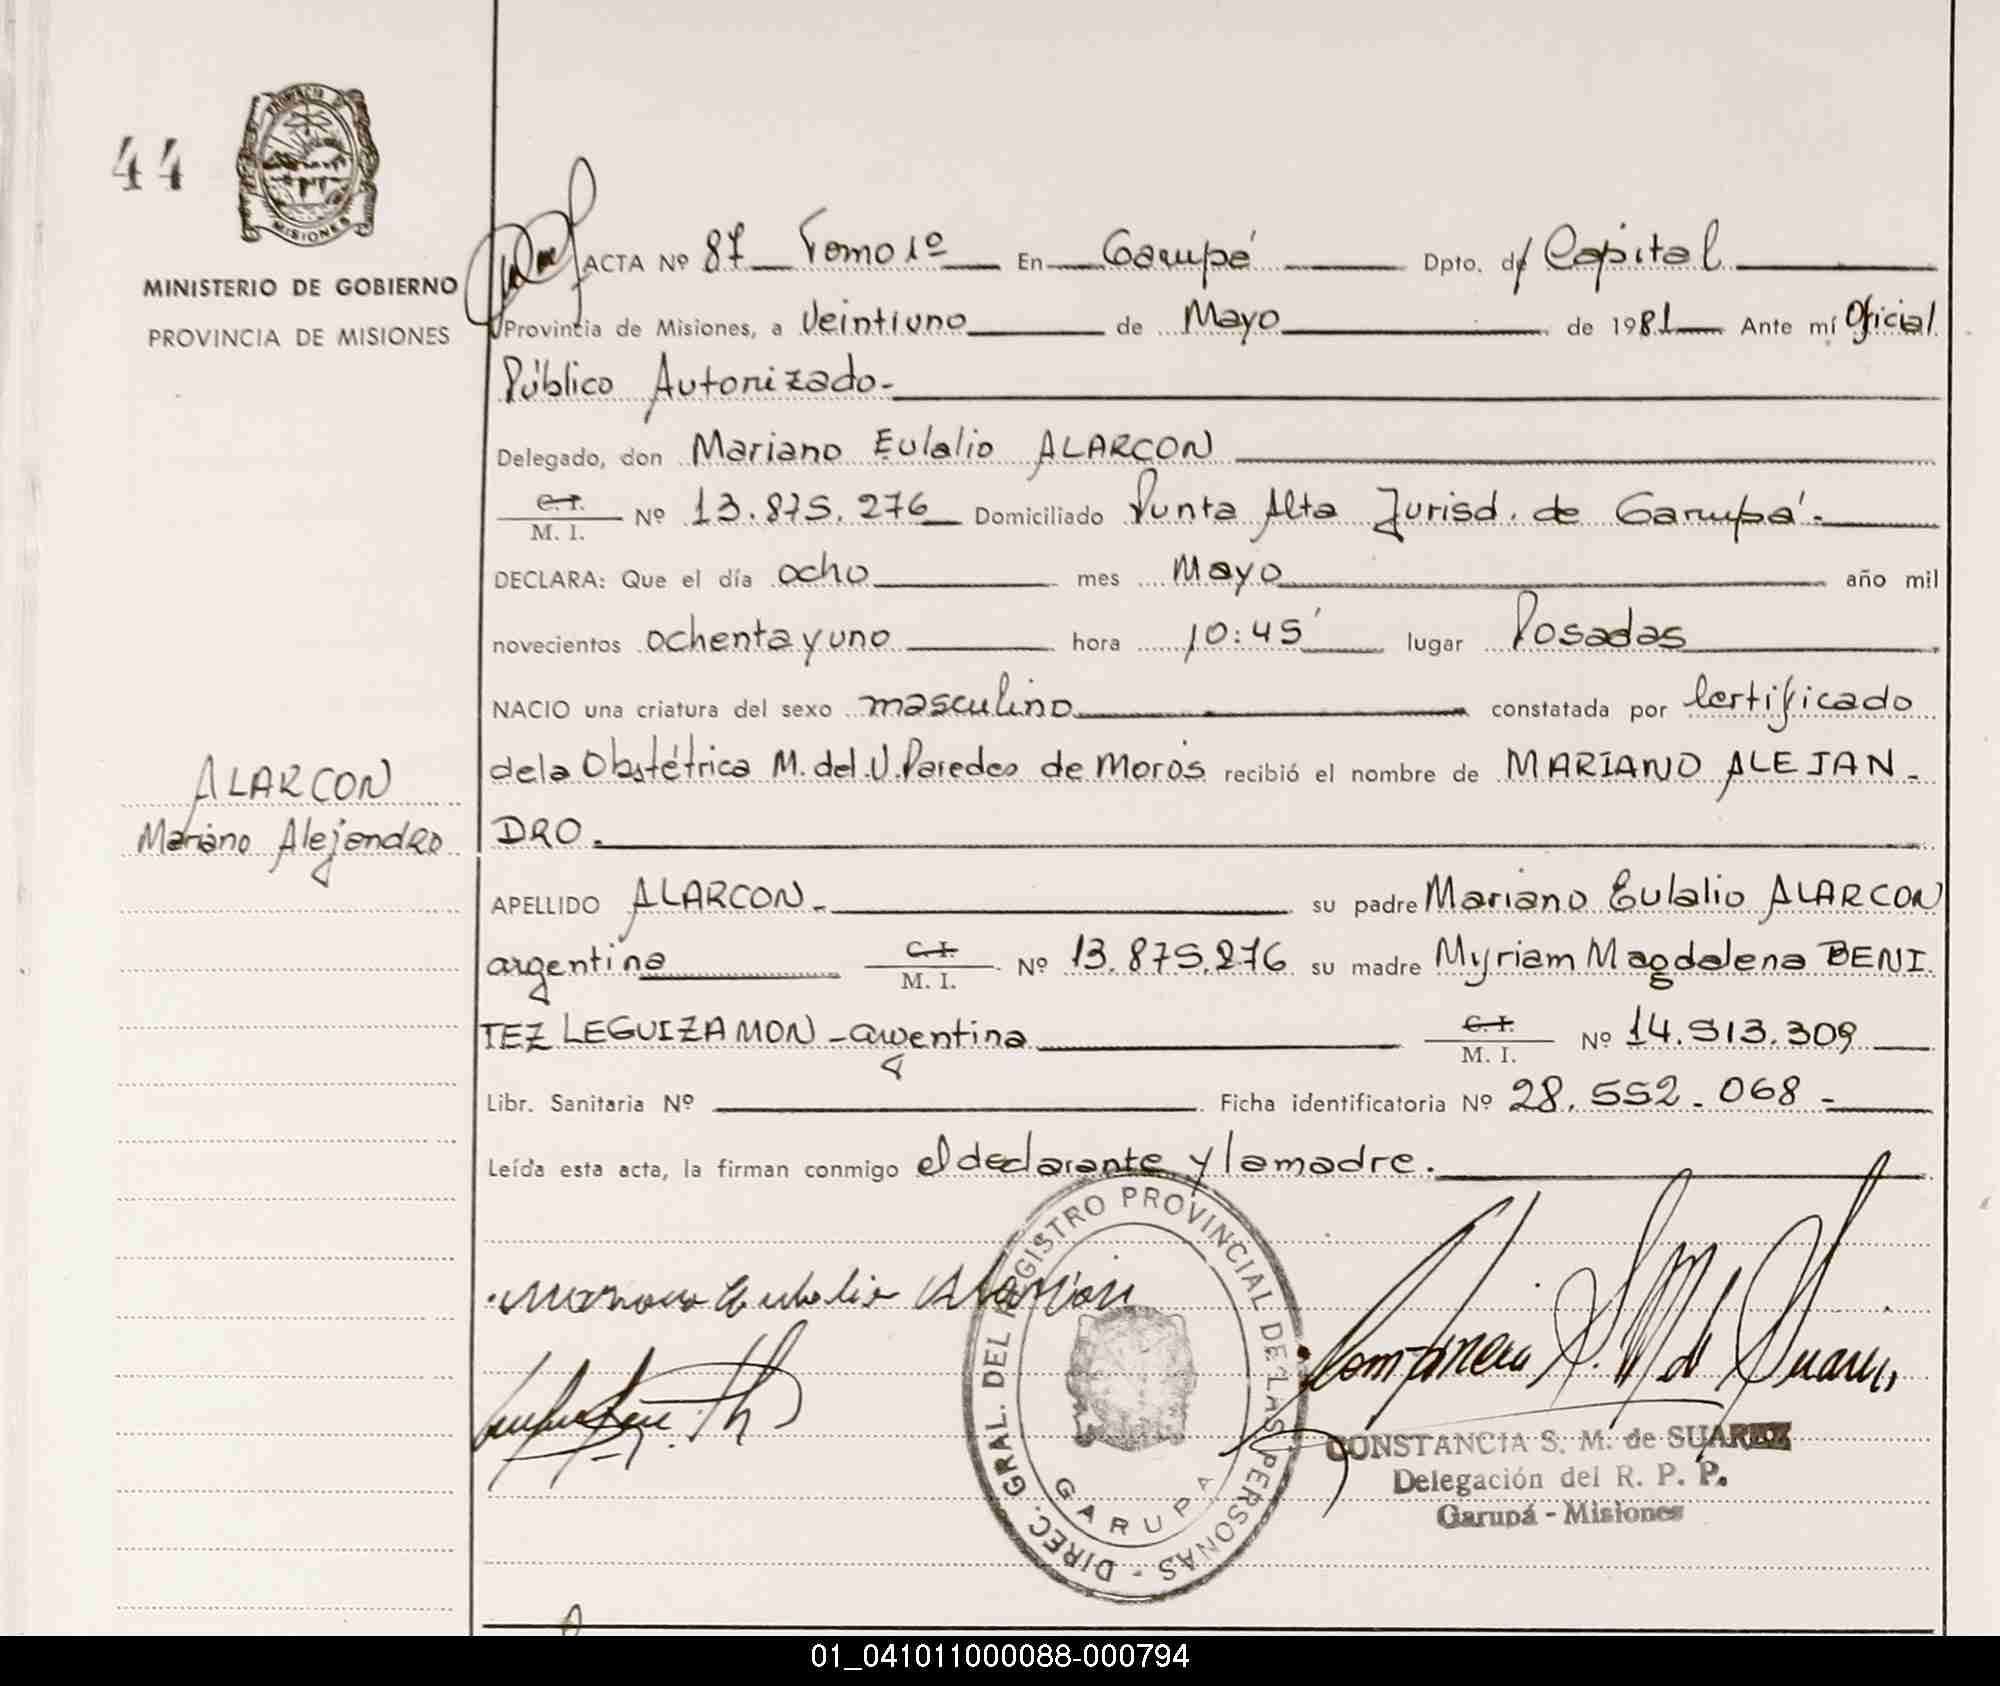 44
PROVINCIA DE
MISIONES
MINISTERIO DE GOBIERNO
PROVINCIA DE MISIONES
ACTA Nº 87 Tomo 1º En Garupá Dpto. de Capital
Provincia de Misiones, a Veintiuno de Mayo de 1981 Ante mí Oficial
Público Autorizado.
Delegado, don Mariano Eulalio ALARCON
C.I. M. I. Nº 13.875.276 Domiciliado Punta Alta Jurisd. de Garupá.
DECLARA: Que el día ocho mes Mayo año mil
novecientos ochenta y uno hora 10:45' lugar Posadas
NACIO una criatura del sexo masculino constatada por Certificado
de la Obstétrica M. del. V. Paredes de Morós recibió el nombre de MARIANO ALEJAN-
DRO.
ALARCON
Mariano Alejandro
APELLIDO ALARCON.- su padre Mariano Eulalio ALARCON
argentina C.I. M. I. Nº 13.875.276 su madre Myriam Magdalena BENI
TEZ LEGUIZAMON - argentina C.I. M. I. Nº 14.513.309
Libr. Sanitaria Nº Ficha identificatoria Nº 28.552.068-
Leída esta acta, la firman conmigo el declarante y la madre.
Mariano Eulalio Alarcón
Constancia S. M. de Suarez
DIREC. GRAL. DEL REGISTRO PROVINCIAL DE LAS PERSONAS -
GARUPA
CONSTANCIA S. M. de SUAREZ
Delegación del R. P. P.
Garupá - Misiones
01_041011000088-000794